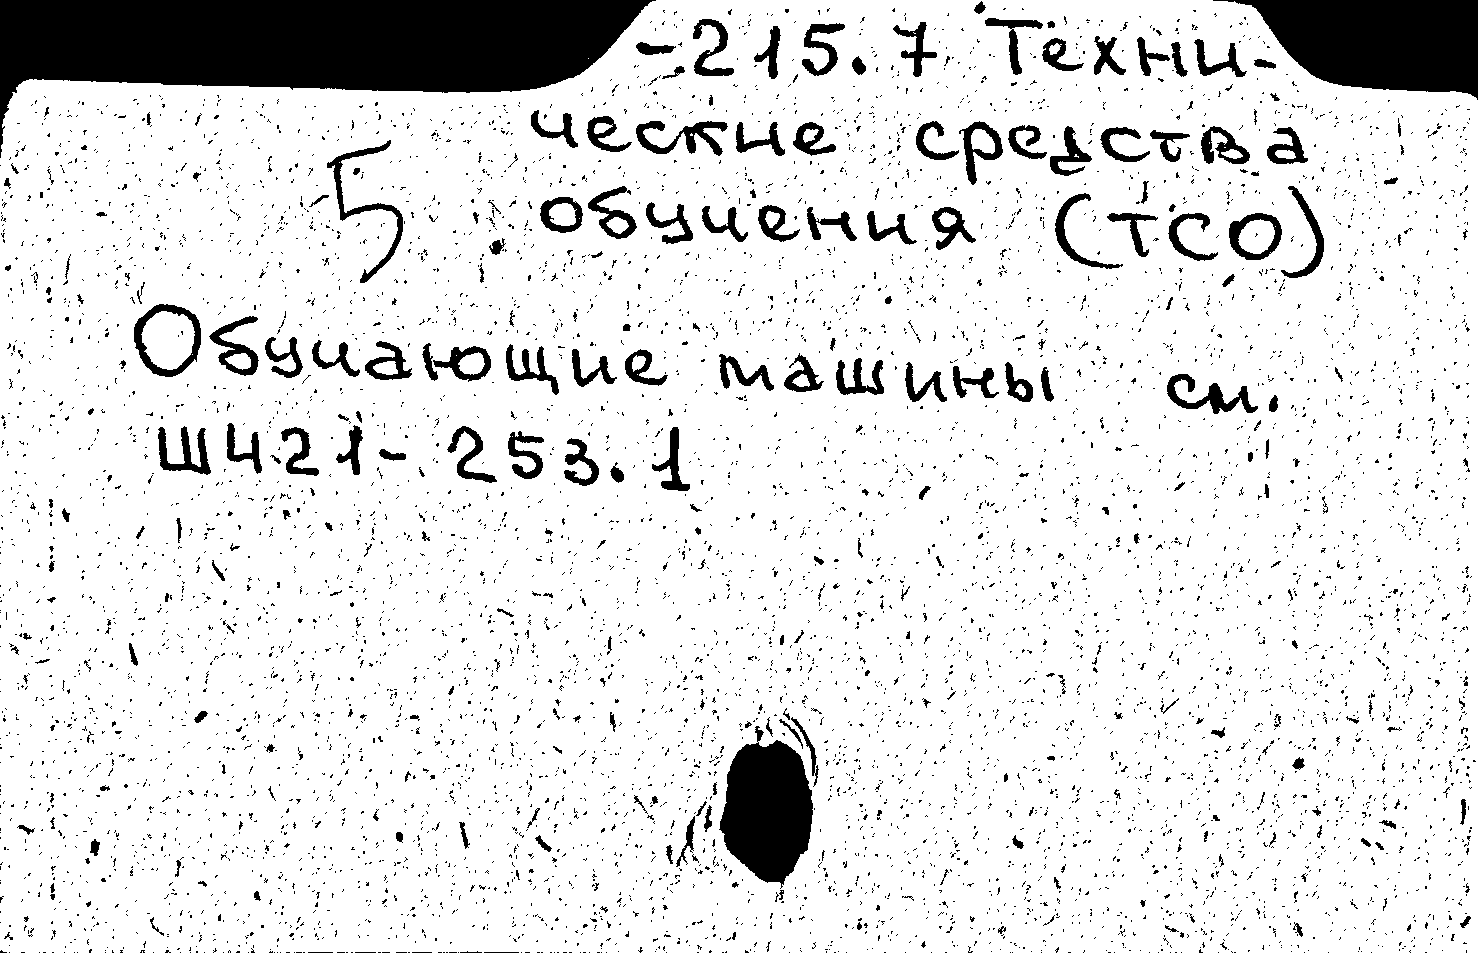 -215.7 Техни-
ческие средства
5 обучения (ТСО)
Обучающие машины см.
Ш421-253.1